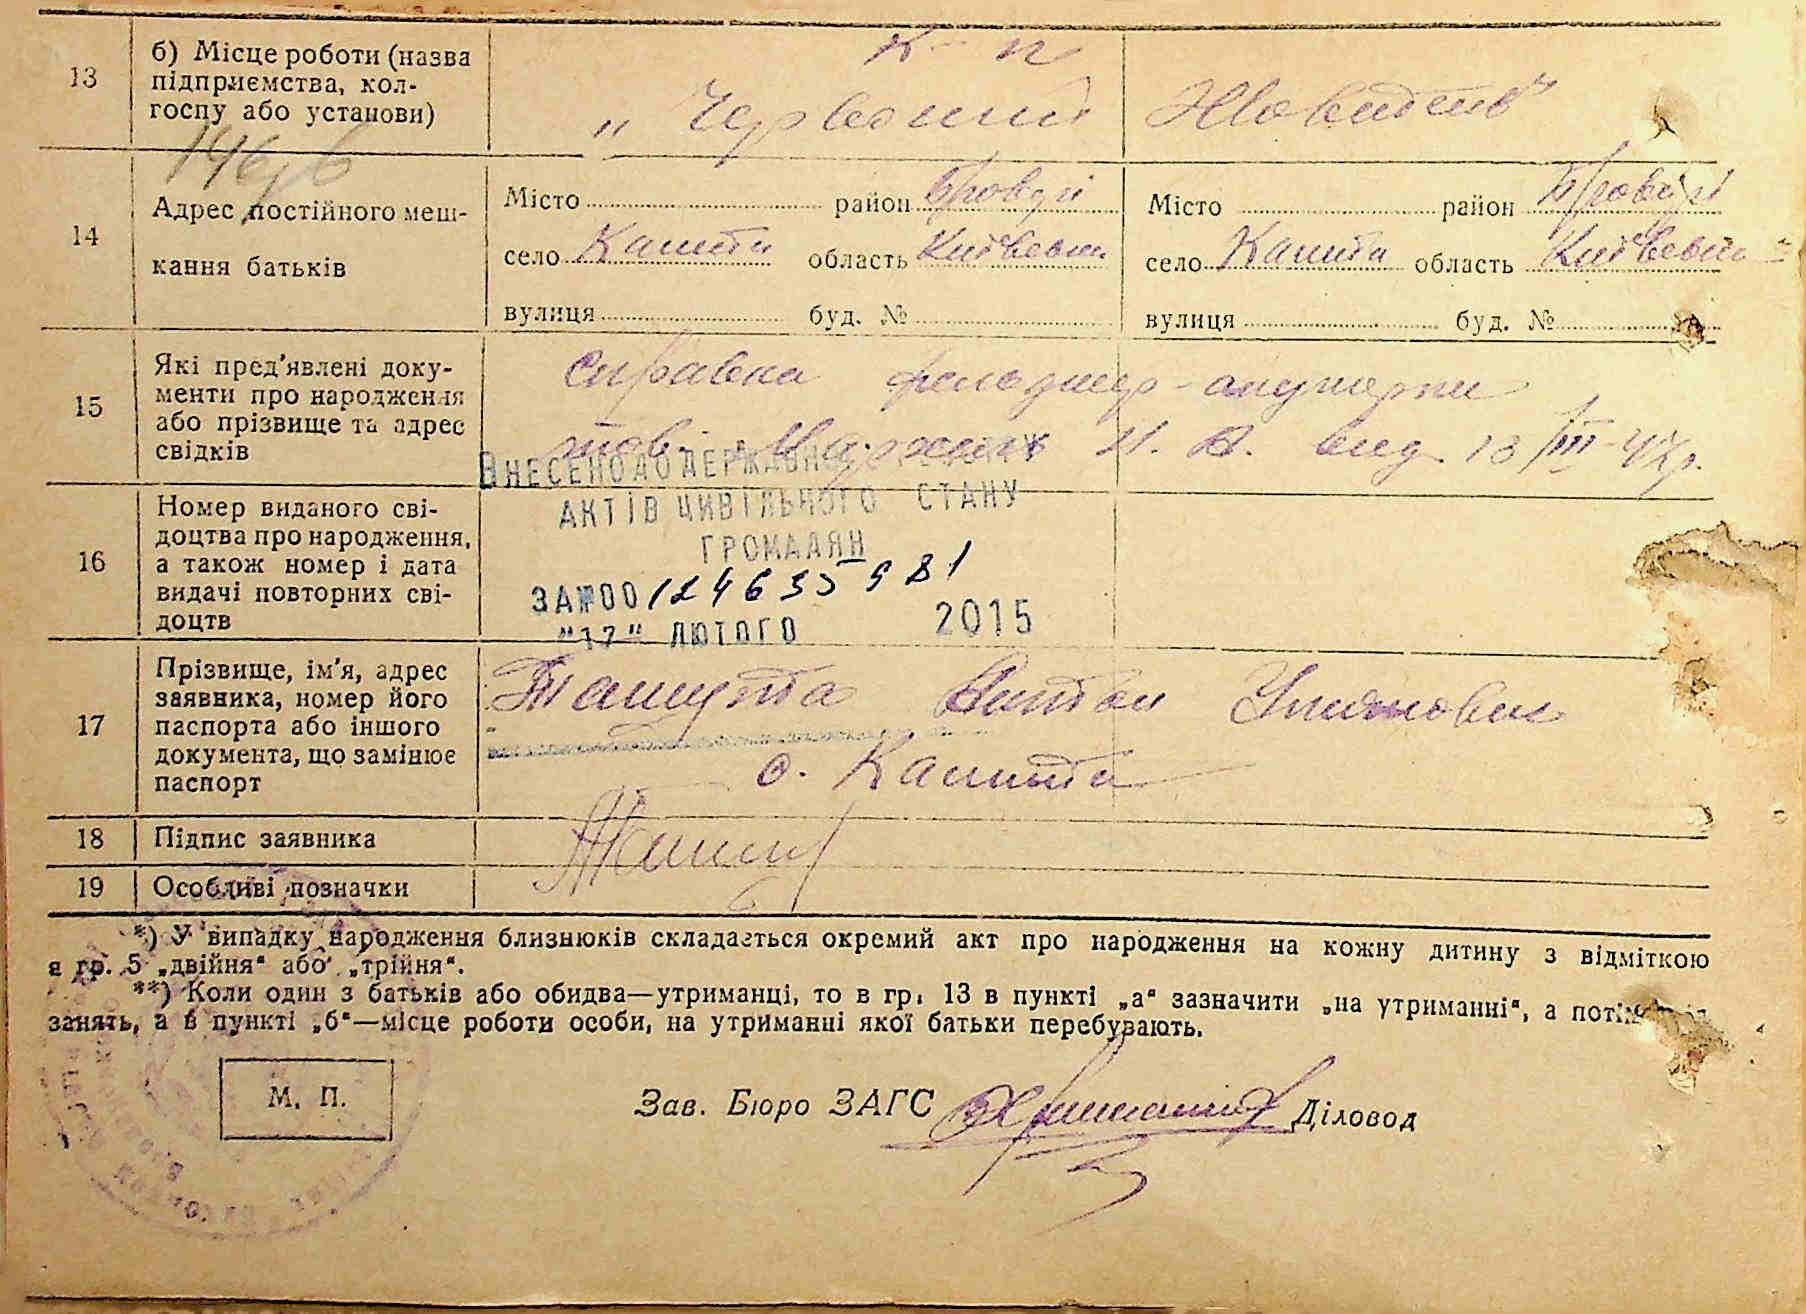 13 б) Місце роботи (назва
підприємства, кол-
госпу або установи)
к-п
„Червоний Жовтень"
14 Адрес постійного меш-
кання батьків
Місто район Бровари Місто район Бровари
село Калита область село Калита область
вулиця буд. № вулиця буд. №
15 Які пред'явлені доку-
менти про народження
або прізвище та адрес
свідків
Справка фельдшер-акушерки
тов. вид 13/III-47р.
ВНЕСЕНО ДО ДЕРЖАВНОГО РЕЄСТРУ
АКТІВ ЦИВІЛЬНОГО СТАНУ
ГРОМАДЯН
ЗА №00124635981
"17" ЛЮТОГО 2015
16 Номер виданого сві-
доцтва про народження,
а також номер і дата
видачі повторних сві-
доцтв
17 Прізвище, ім'я, адрес
заявника, номер його
паспорта або іншого
документа, що замінює
паспорт
с. Калита
18 Підпис заявника
19 Особливі позначки
*) У випадку народження близнюків складається окремий акт про народження на кожну дитину з відміткою
в гр. 5 „двійня“ або „трійня“.
**) Коли один з батьків або обидва—утриманці, то в гр. 13 в пункті „а“ зазначити „на утриманні“, а потім
занять, а в пункті „б“—місце роботи особи, на утриманні якої батьки перебувають.
М. П.
Зав. Бюро ЗАГС Діловод